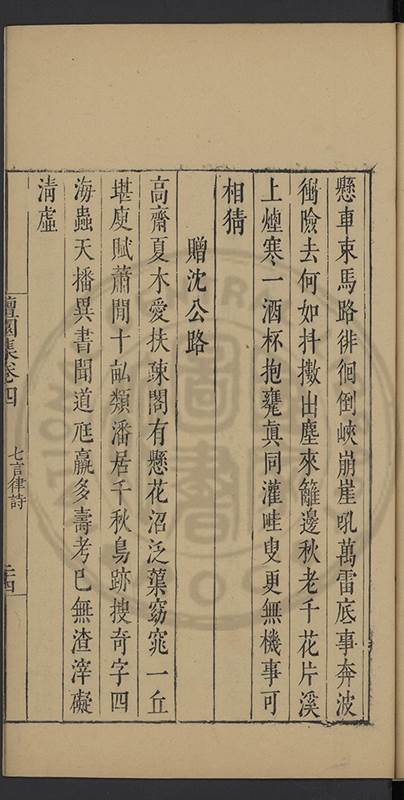 懸車束馬路徘徊倒峽崩崖吼萬雷底事奔波
衝險去何如抖擻出塵來籬邊秋老千花片溪
上煙寒一酒杯抱甕眞同灌畦叟更無機事可
相猜
贈沈公路
高齋夏木愛扶疎閣有懸花沼泛蕖窈窕一丘
堪庾賦蕭閒十畝類潘居千秋鳥跡搜奇字四
海蟲天播異書聞道尫羸多壽考已無渣滓礙
淸虛
檀園集卷四
七言律詩